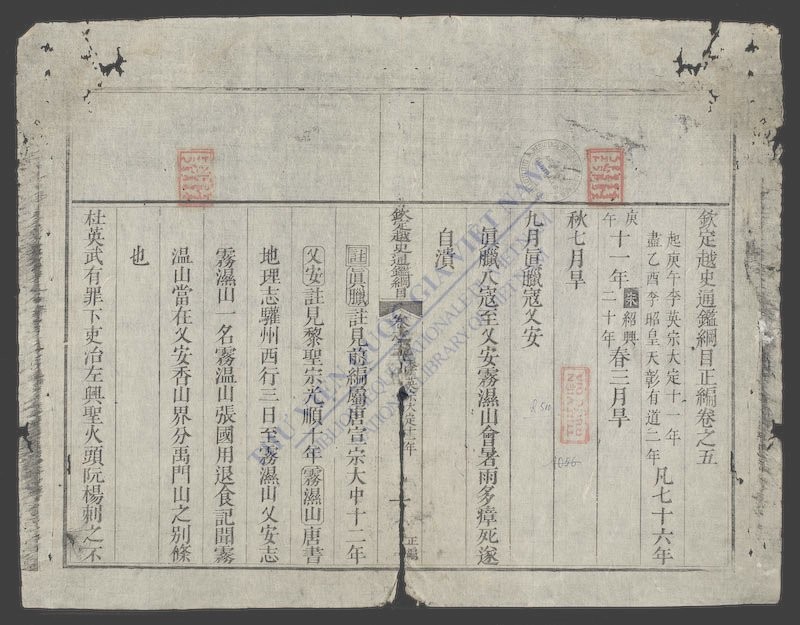 欽定越史通鑑綱目正編卷之五
起庚午李英宗大定十一年
盡乙酉李昭皇天彰有道二年
凡七十六年
庚午
十一年
宋紹興二十年
春三月旱
秋七月旱
九月眞臘寇乂安
眞臘入寇至乂安霧濕山會暑雨多瘴死遂
自潰
欽定越史通鑑綱目
正編
註眞臘註見前編屬唐宣宗大中十二年
乂安註見黎聖宗光順十年霧濕山唐書
地理志驩州西行三日至霧濕山乂安志
霧濕山一名霧温山張國用退食記聞霧
温山當在乂安香山界分禹門山之別條
也
杜英武有罪下吏治左興聖火頭阮楊刺之不
THƯ VIỆN QUỐC GIA VIỆT NAM
BIBLIOTHÈQUE NATIONALE DU VIETNAM
NATIONAL LIBRARY OF VIETNAM